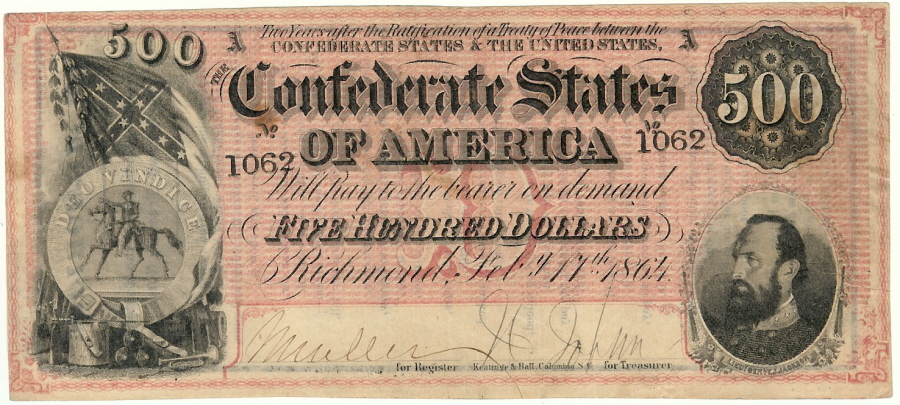 500
A Two Years after the Ratification of a Treaty of Peace between the A
CONFEDERATE STATES & THE UNITED STATES,
THE
Confederate States
500
OF AMERICA
No 1062
No 1062
Will pay to the bearer on demand
FIVE HUNDRED DOLLARS
Richmond, Feb.y 17th, 1864.
DEO VINDICE
for Register Keatinge & Ball, Columbia S.C. for Treasurer